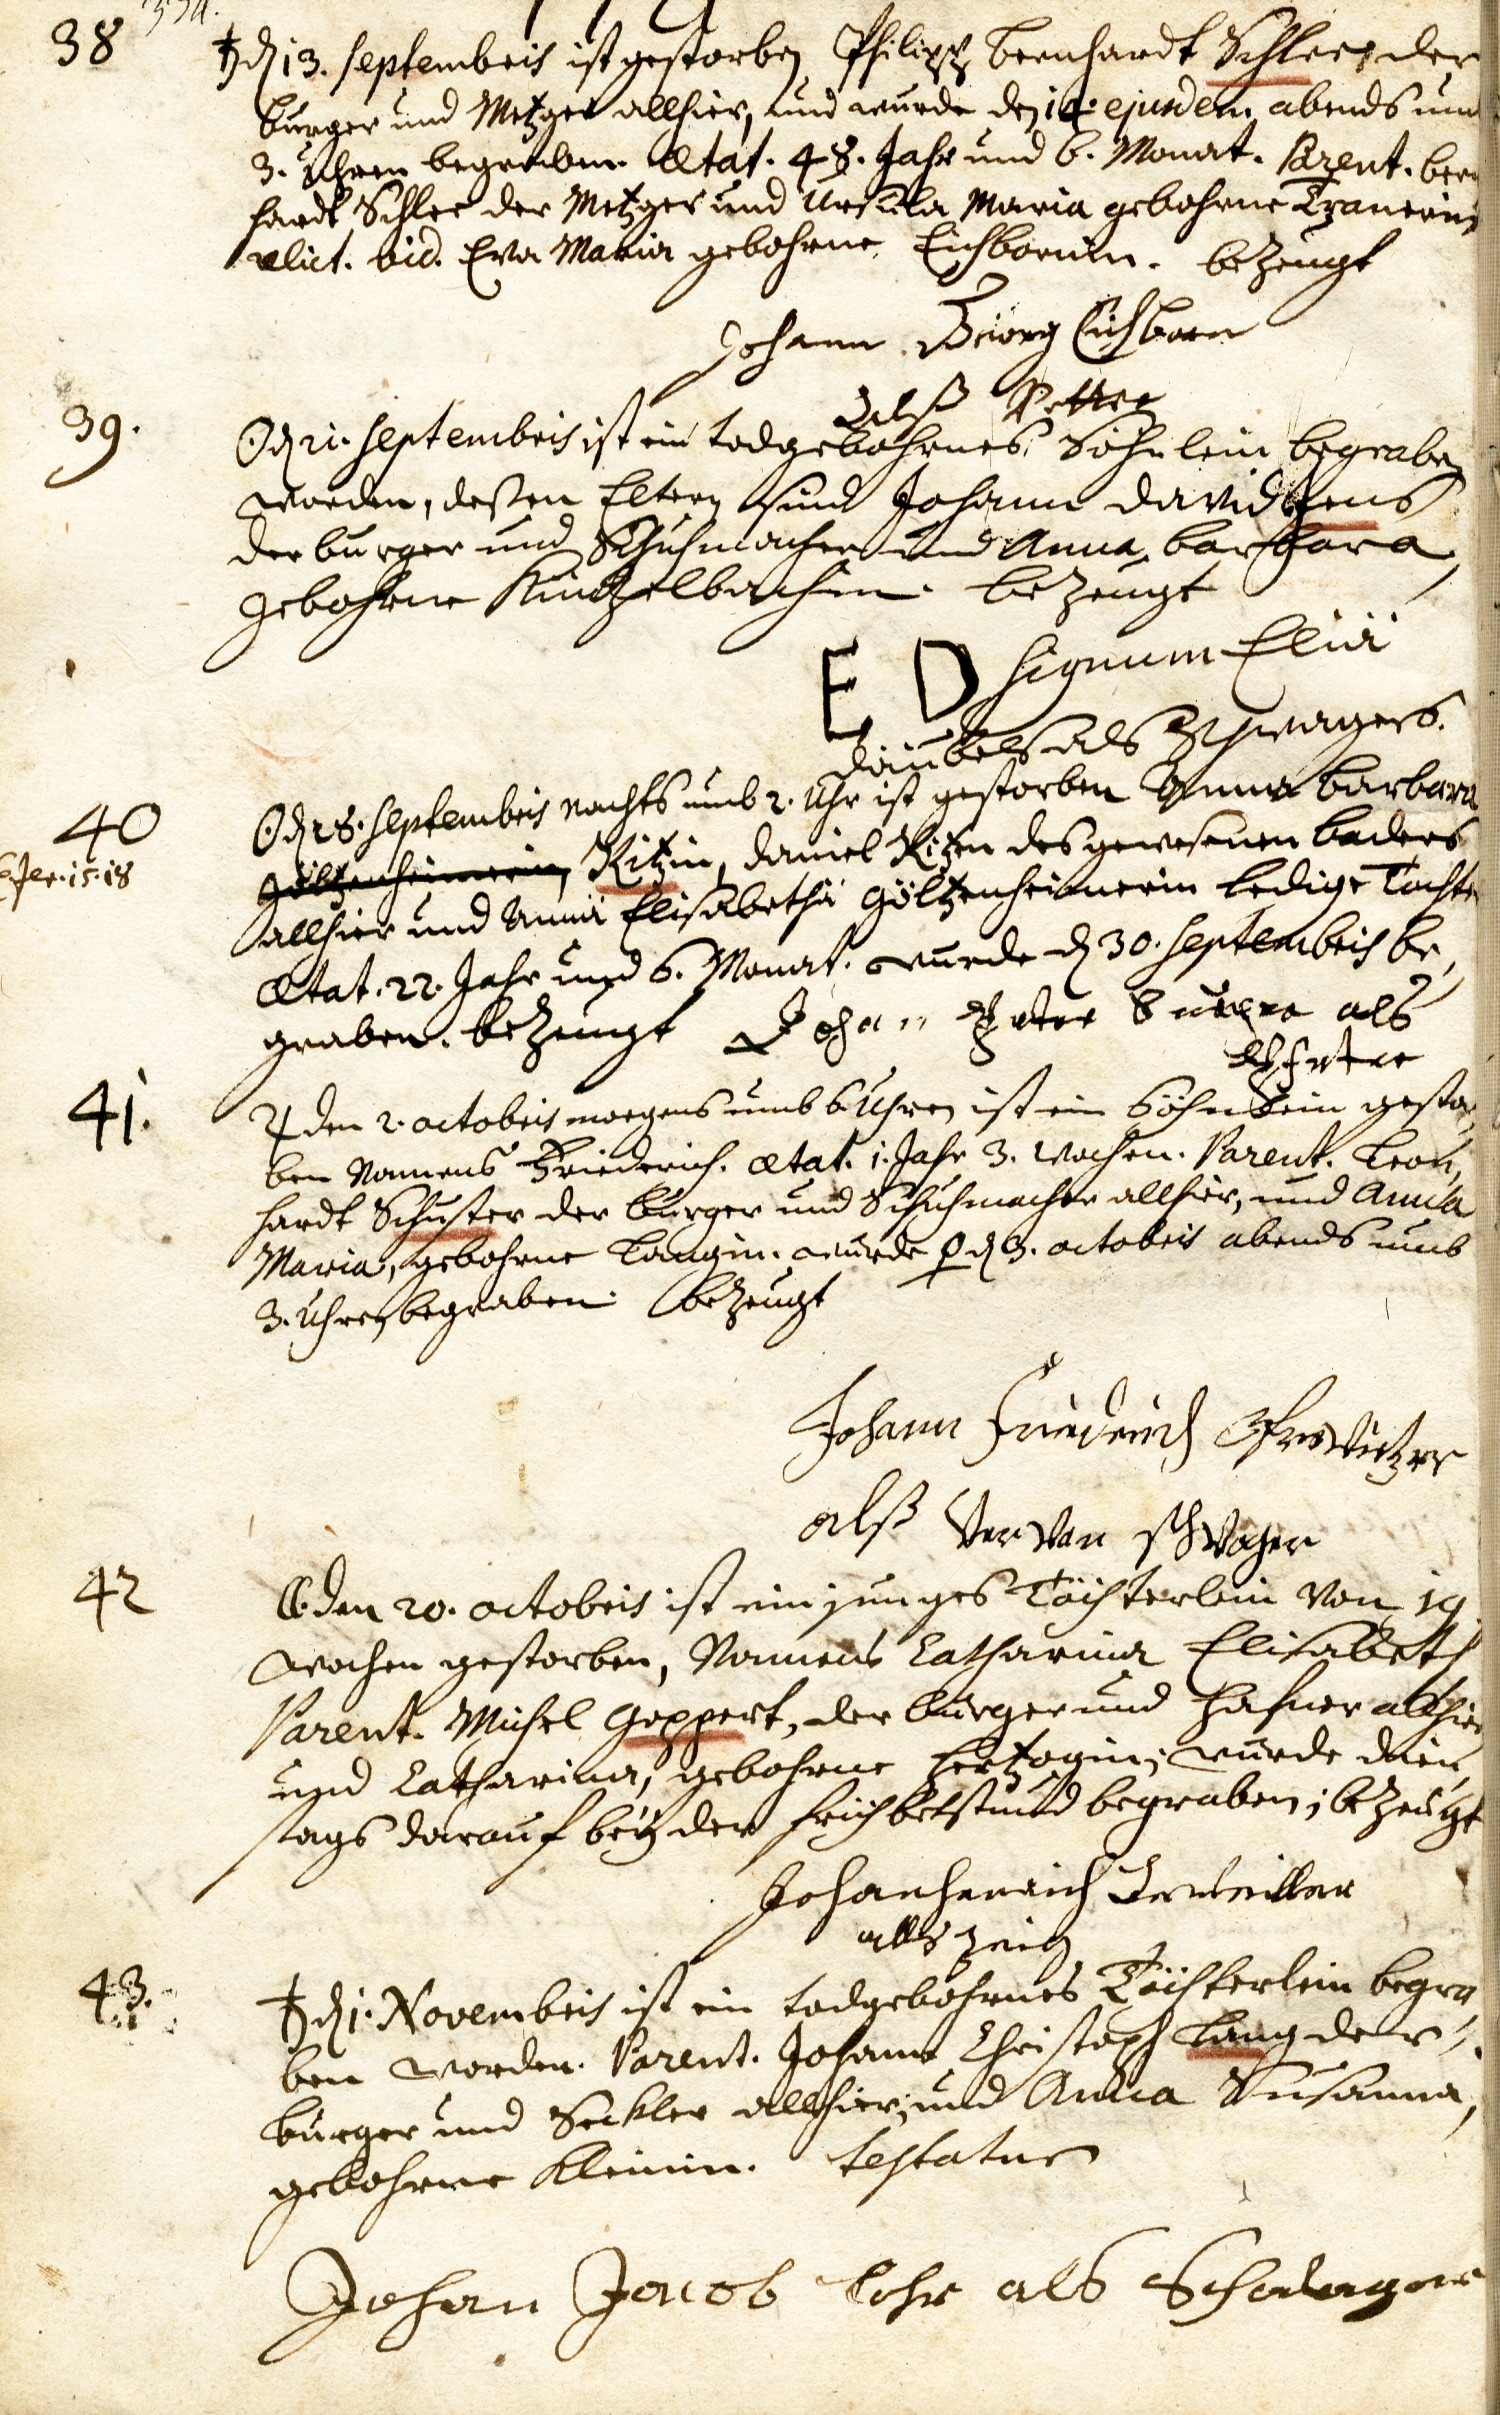 38
♄ d. 13. Septembris ist gestorben Philipp Bernhardt Schleer der
burger und Metzger allhier, und wurde den 14. ejusdem abends um
3. Uhren begraben. Ætat. 48. Jahr und 6. Monat. Parent. bern
hardt Schleer der Metzger und Ursula Maria gebohrne
relict. vid. Eva Maria gebohrne Eichbornin. bezeugt
Johann Georg Eichborn
Alß Vetter
39.
☉ d. 21. Septembris ist ein todgebohrnes Söhnlein begraben
worden, deßen Eltern sind Johann David
der burger und Schuhmacher und Anna barbara,
gebohrne Kintzelbachin. bezeugt
E D Signum Eliä
Däubels als Schwagers.
40
Jer. 15. 18
☉ d. 28. Septembris nachts umb 2. Uhr ist gestorben Anna barbara
Göltzenheimerin, Ritzin, Daniel Ritzen des gewesenen baders
allhier und Annä Elisabethä Göltzenheimerin ledige Tochter
Ætat. 22. Jahr und 6. Monat. wurde d. 30. Septembris be,
graben. bezeugt Johan Peter als
41.
♃ den 2. octobris morgens umb 6 Uhren ist ein Söhnlein gestor,
ben Namens Friederich. ætat. 1. Jahr 3. wochen. Parent. Leon,
hardt Schuster der burger und Schuhmacher allhier, und Anna
Maria, gebohrne Langin. wurde ♀ d. 3. octobris abends umb
3. Uhren begraben. bezeugt
Johann Friederich
alß schwager
42
☾ den 20. octobris ist ein junges Töchterlein von 19
wochen gestorben, Namens Catharina Elisabeth
Parent. Michel Geppert, der burger und Hafner allhier
und Catharina, gebohrne Hertzogin; wurde dien,
stags darauf bey der frühbetstund begraben; bezeugt
Johanhenrich
alls zeig
43.
♄ d. 1. Novembris ist ein todgebohrnes Töchterlein begra,
ben worden. Parent. Johann Christoph Lang der
burger und Seckler allhier, und Anna Susanna,
gebohrne Kleinin. testatur
Johan Jacob Lohr als Schwager